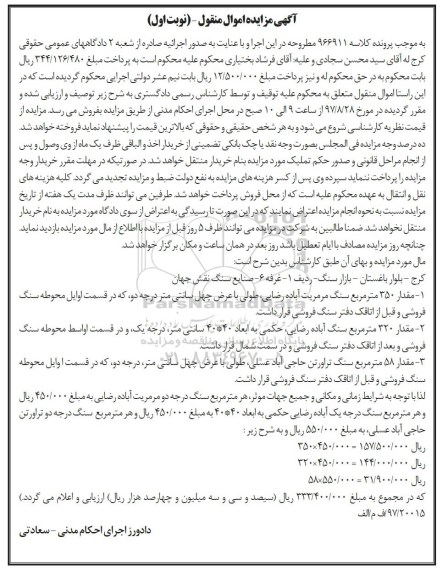 آگهی مزایده اموال منقول - (نوبت اول)
به موجب پرونده کلاسه ۹۶۶۹۱۱ مطروحه در این اجرا و با عنایت به صدور اجرائیه صادره از شعبه ۲ دادگاههای عمومی حقوقی
کرج له آقای سید محسن سجادی و علیه آقای فرشاد بختیاری محکوم علیه محکوم است به پرداخت مبلغ ۳۴۴/۱۲۶/۴۸۰ ریال
بابت محکوم به در حق محکوم له و نیز پرداخت مبلغ ۱۲/۵۰۰/۰۰۰ ریال بابت نیم عشر دولتی اجرایی محکوم گردیده است که در
این راستا اموال منقول متعلق به محکوم علیه توقیف و توسط کارشناس رسمی دادگستری به شرح زیر توصیف و ارزیابی شده و
مقرر گردیده در مورخ ۹۷/۸/۲۸ از ساعت ۹ الی ۱۰ صبح در محل اجرای احکام مدنی از طریق مزایده بفروش می رسد. مزایده از
قیمت نظریه کارشناسی شروع می شود و به هر شخص حقیقی و حقوقی که بالاترین قیمت را پیشنهاد نماید فروخته خواهد شد.
ده درصد وجه مزایده فی المجلس بصورت وجه نقد یا چک بانکی تضمینی از خریدار اخذ و الباقی ظرف یک ماه از وی وصول و پس
از انجام مراحل قانونی و صدور حکم تملیک مورد مزایده بنام خریدار منتقل خواهد شد. در صورتیکه در مهلت مقرر خریدار وجه
مزایده را پرداخت ننماید سپرده وی پس از کسر هزینه های مزایده به نفع دولت ضبط و مزایده تجدید می گردد. کلیه هزینه های
نقل و انتقال به عهده محکوم علیه است که از محل فروش پرداخت خواهد شد. طرفین می توانند ظرف مدت یک هفته از تاریخ
مزایده نسبت به نحوه انجام مزایده اعتراض نمایند که در این صورت تا رسیدگی به اعتراض از سوی دادگاه مورد مزایده به نام خریدار
منتقل نخواهد شد. ضمنا طالبین به شرکت در مزایده می توانند ظرف ۵ روز قبل از مزایده با اطلاع از مال مورد مزایده بازدید نماید.
چنانچه روز مزایده مصادف با ایام تعطیل باشد روز بعد در همان ساعت و مکان برگزار خواهد شد.
مال مورد مزایده و بهای آن طبق کارشناسی بدین شرح است:
کرج - بلوار باغستان - بازار سنگ - ردیف ۱ - غرفه ۶ - صنایع سنگ نقش جهان
۱- مقدار ۳۵۰ مترمربع سنگ مرمریت آباده رضایی، طولی با عرض چهل سانتی متر درجه دو، که در قسمت اوایل محوطه سنگ
فروشی و قبل از اتاقک دفتر سنگ فروشی قرار داشت.
۲- مقدار ۳۲۰ مترمربع سنگ آباده رضایی، حکمی به ابعاد ۴۰*۴۰ سانتی متر، درجه یک، و در قسمت اواسط محوطه سنگ
فروشی و بعد از اتاقک دفتر سنگ فروشی و در سمت شمال قرار داشت.
۳- مقدار ۵۸ مترمربع سنگ تراورتن حاجی آباد عسلی، طولی با عرض چهل سانتی متر، درجه دو، که در قسمت اوایل محوطه
سنگ فروشی و قبل از اتاقک دفتر سنگ فروشی قرار داشت.
لذا با توجه به شرایط زمانی و مکانی و جمیع جهات موثر، هر متر مربع سنگ درجه دو مرمریت آباده رضایی به مبلغ ۴۵۰/۰۰۰ ریال
و هر مترمربع سنگ درجه یک آباده رضایی حکمی به ابعاد ۴۰*۴۰ به مبلغ ۴۵۰/۰۰۰ ریال و هر مترمربع سنگ درجه دو تراورتن
حاجی آباد عسلی، به مبلغ ۵۵۰/۰۰۰ ریال و به شرح زیر:
ریال ۱۵۷/۵۰۰/۰۰۰ = ۴۵۰/۰۰۰×۳۵۰
ریال ۱۴۴/۰۰۰/۰۰۰ = ۴۵۰/۰۰۰×۳۲۰
ریال ۳۱/۹۰۰/۰۰۰ = ۵۵۰/۰۰۰×۵۸
که در مجموع به مبلغ ۳۳۳/۴۰۰/۰۰۰ ریال (سیصد و سی و سه میلیون و چهارصد هزار ریال) ارزیابی و اعلام می گردد.)
۹۷/۲۰۰۱۵/ف م/الف
دادورز اجرای احکام مدنی - سعادتی